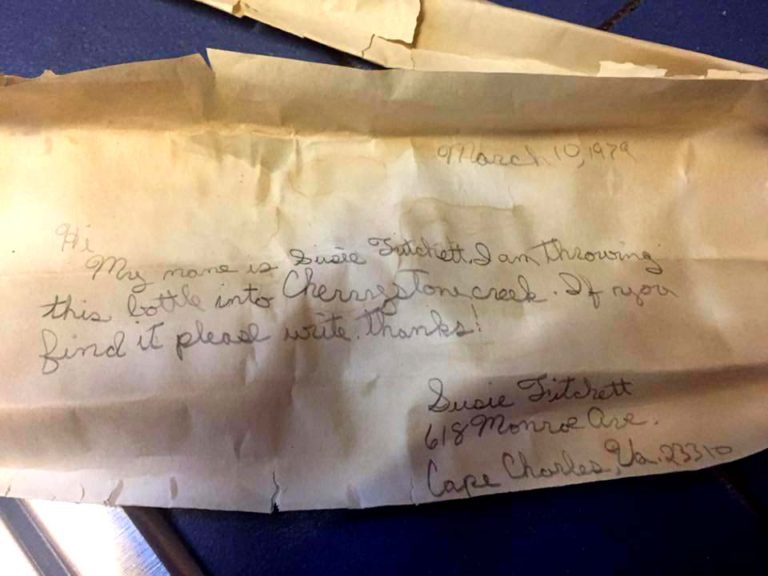 March 10, 1979
Hi
My name is Susie Fitchett. I am throwing
this bottle into Cherrystone creek. If you
find it please write. thanks!
Susie Fitchett
618 Monroe Ave.
Cape Charles, Va. 23310